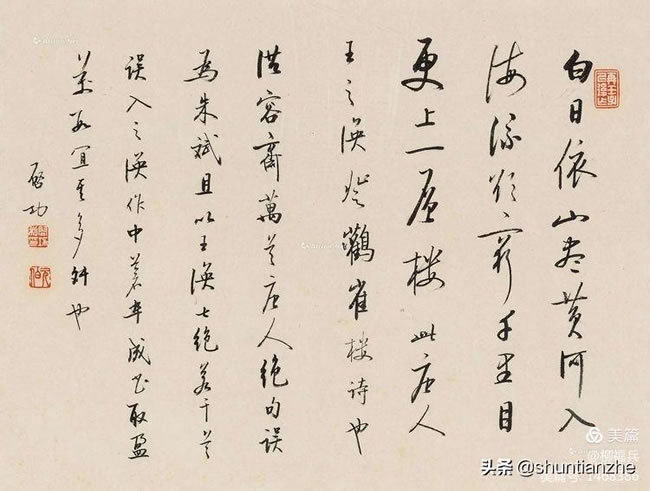 白日依山尽黄河入
海流欲穷千里目
更上一层楼此唐人
王之涣登鸛雀楼诗也
洪容齋萬首唐人绝句误
為朱斌且以王涣七绝若干首
误入之涣作中蓋率成书取盈
萬数宜其多舛也
启功
美篇
@柳福兵
美篇号
头条 @shuntianzhe